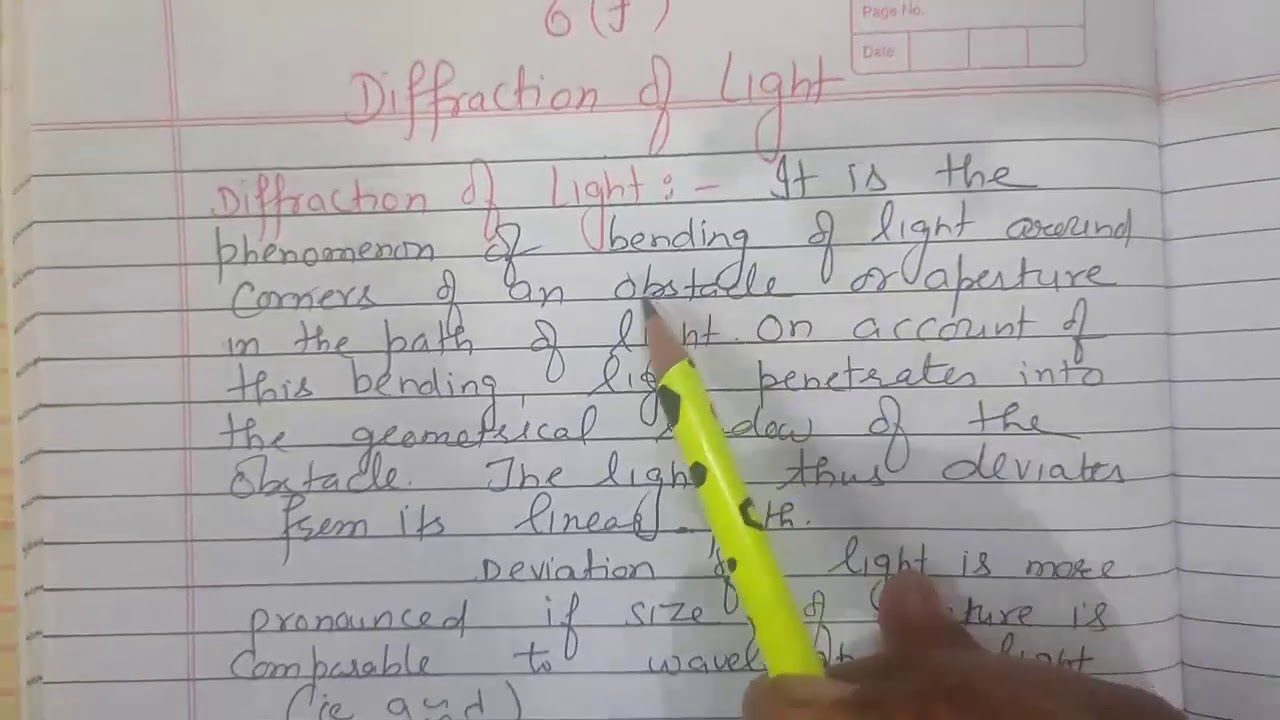 6 (f)
Page No.
Date
Diffraction of Light
Diffraction of Light :- It is the
phenomenon of bending of light around
Corners of an obstacle or aperture
in the path of light. On account of
this bending, light penetrates into
the geometrical shadow of the
Obstacle. The light thus deviates
from its linear path.
Deviation of light is more
pronounced if size of aperture is
Comparable to wavelength of light